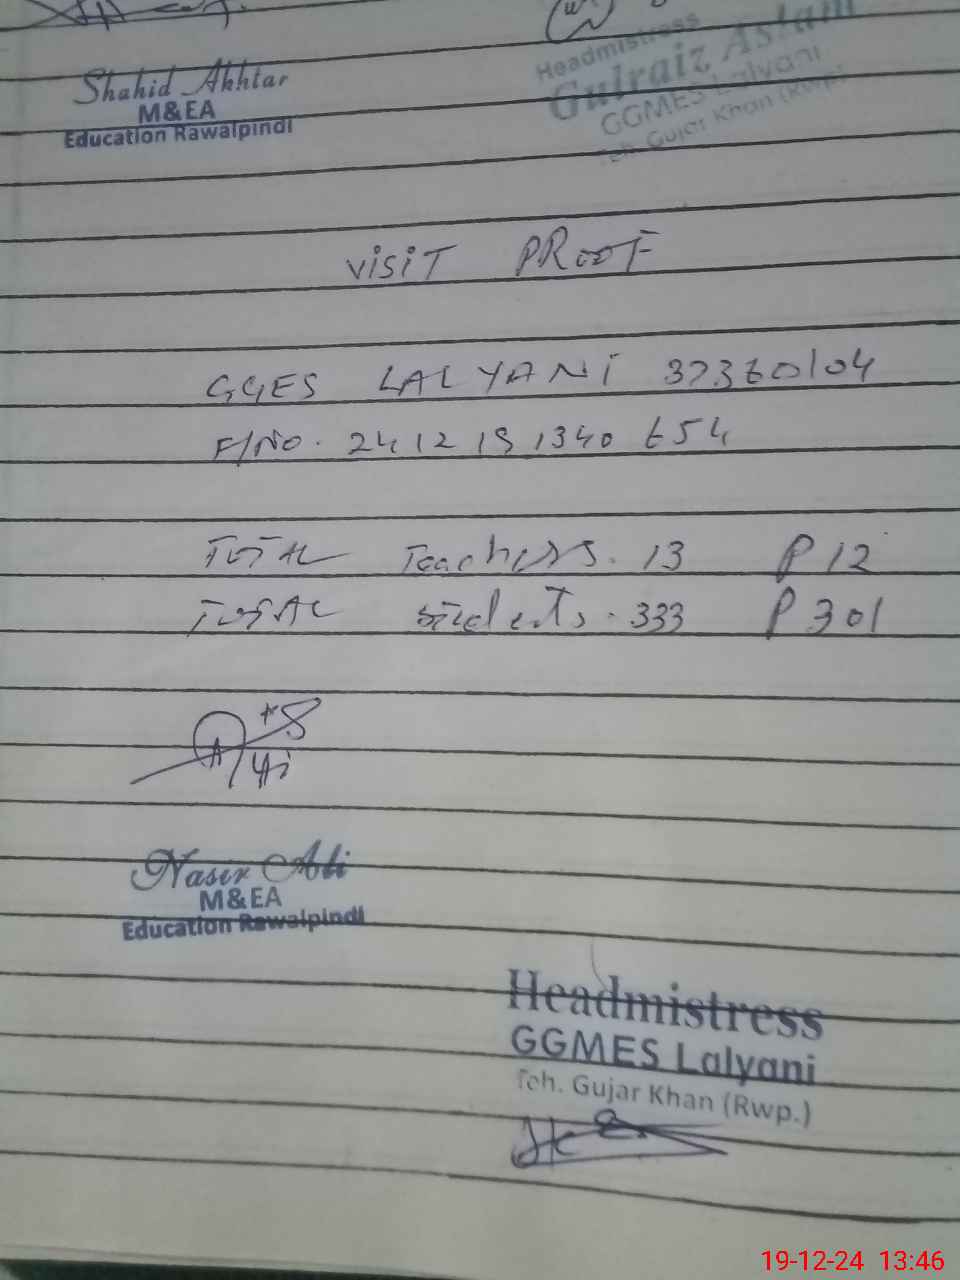 Shahid Akhtar
M&EA
Education Rawalpindi
Headmistress
Gulraiz Aslam
GGMES Lalyani
Teh. Gujar Khan (Rwp.)
VISIT PROOF
GGES LALYANI 37360104
F/NO. 241219 1340 654
TOTAL Teachers. 13 P 12
TOTAL Students. 333 P 301
Nasir Ali
M&EA
Education Rawalpindi
Headmistress
GGMES Lalyani
Teh. Gujar Khan (Rwp.)
19-12-24 13:46